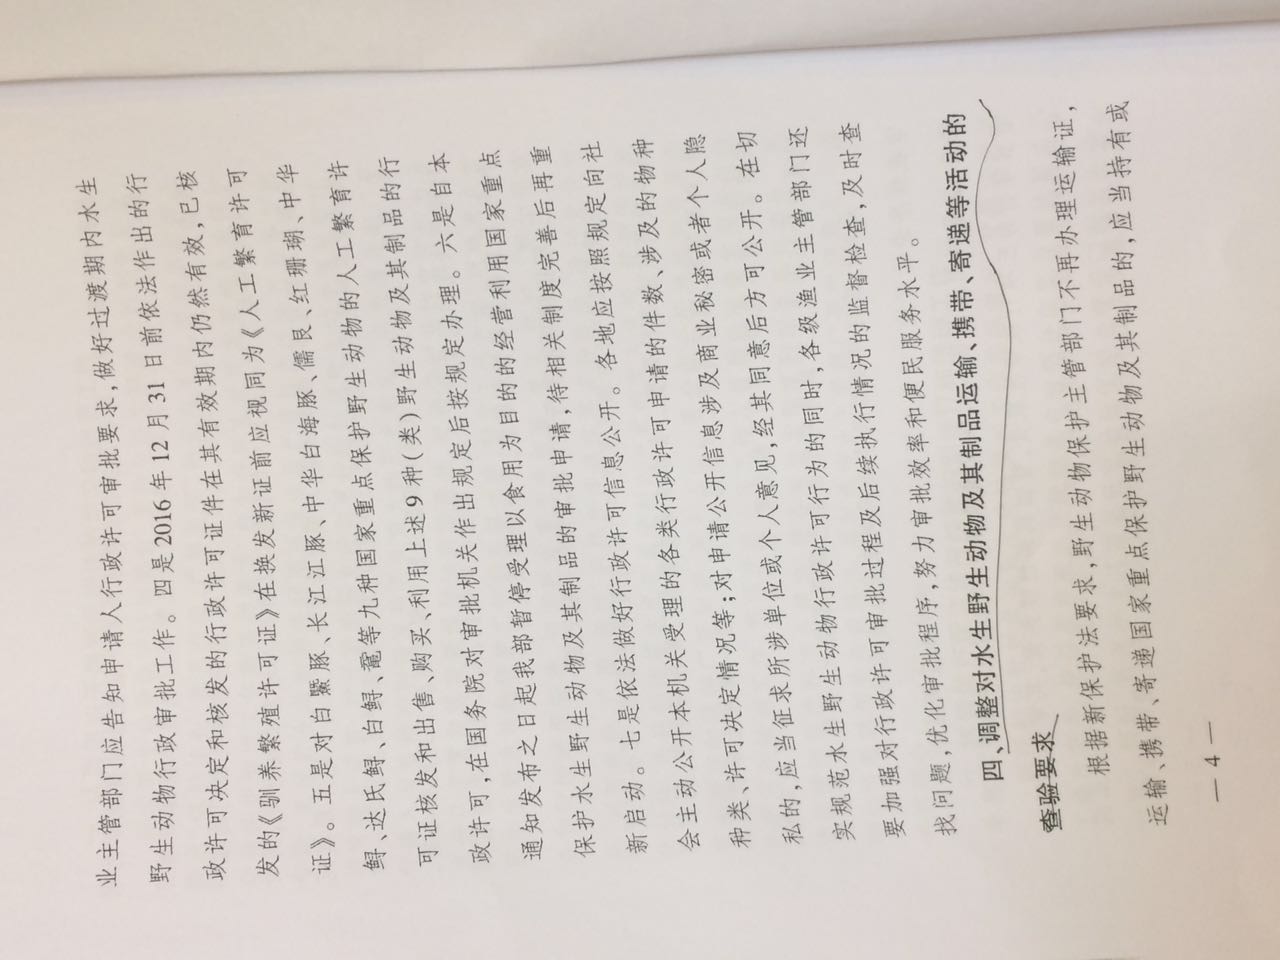 业主管部门应告知申请人行政许可审批要求,做好过渡期内水生
野生动物行政审批工作。四是2016年12月31日前依法作出的行
政许可决定和核发的行政许可证件在其有效期内仍然有效,已核
发的《驯养繁殖许可证》在换发新证前应视同为《人工繁育许可
证》。五是对白鱀豚、长江江豚、中华白海豚、儒艮、红珊瑚、中华
鲟、达氏鲟、白鲟、鼋等九种国家重点保护野生动物的人工繁育许
可证核发和出售、购买、利用上述9种(类)野生动物及其制品的行
政许可,在国务院对审批机关作出规定后按规定办理。六是自本
通知发布之日起我部暂停受理以食用为目的的经营利用国家重点
保护水生野生动物及其制品的审批申请,待相关制度完善后再重
新启动。七是依法做好行政许可信息公开。各地应按照规定向社
会主动公开本机关受理的各类行政许可申请的件数、涉及的物种
种类、许可决定情况等;对申请公开信息涉及商业秘密或者个人隐
私的,应当征求所涉单位或个人意见,经其同意后方可公开。在切
实规范水生野生动物行政许可行为的同时,各级渔业主管部门还
要加强对行政许可审批过程及后续执行情况的监督检查,及时查
找问题,优化审批程序,努力审批效率和便民服务水平。
四、调整对水生野生动物及其制品运输、携带、寄递等活动的
查验要求
根据新保护法要求,野生动物保护主管部门不再办理运输证,
运输、携带、寄递国家重点保护野生动物及其制品的,应当持有或
— 4 —